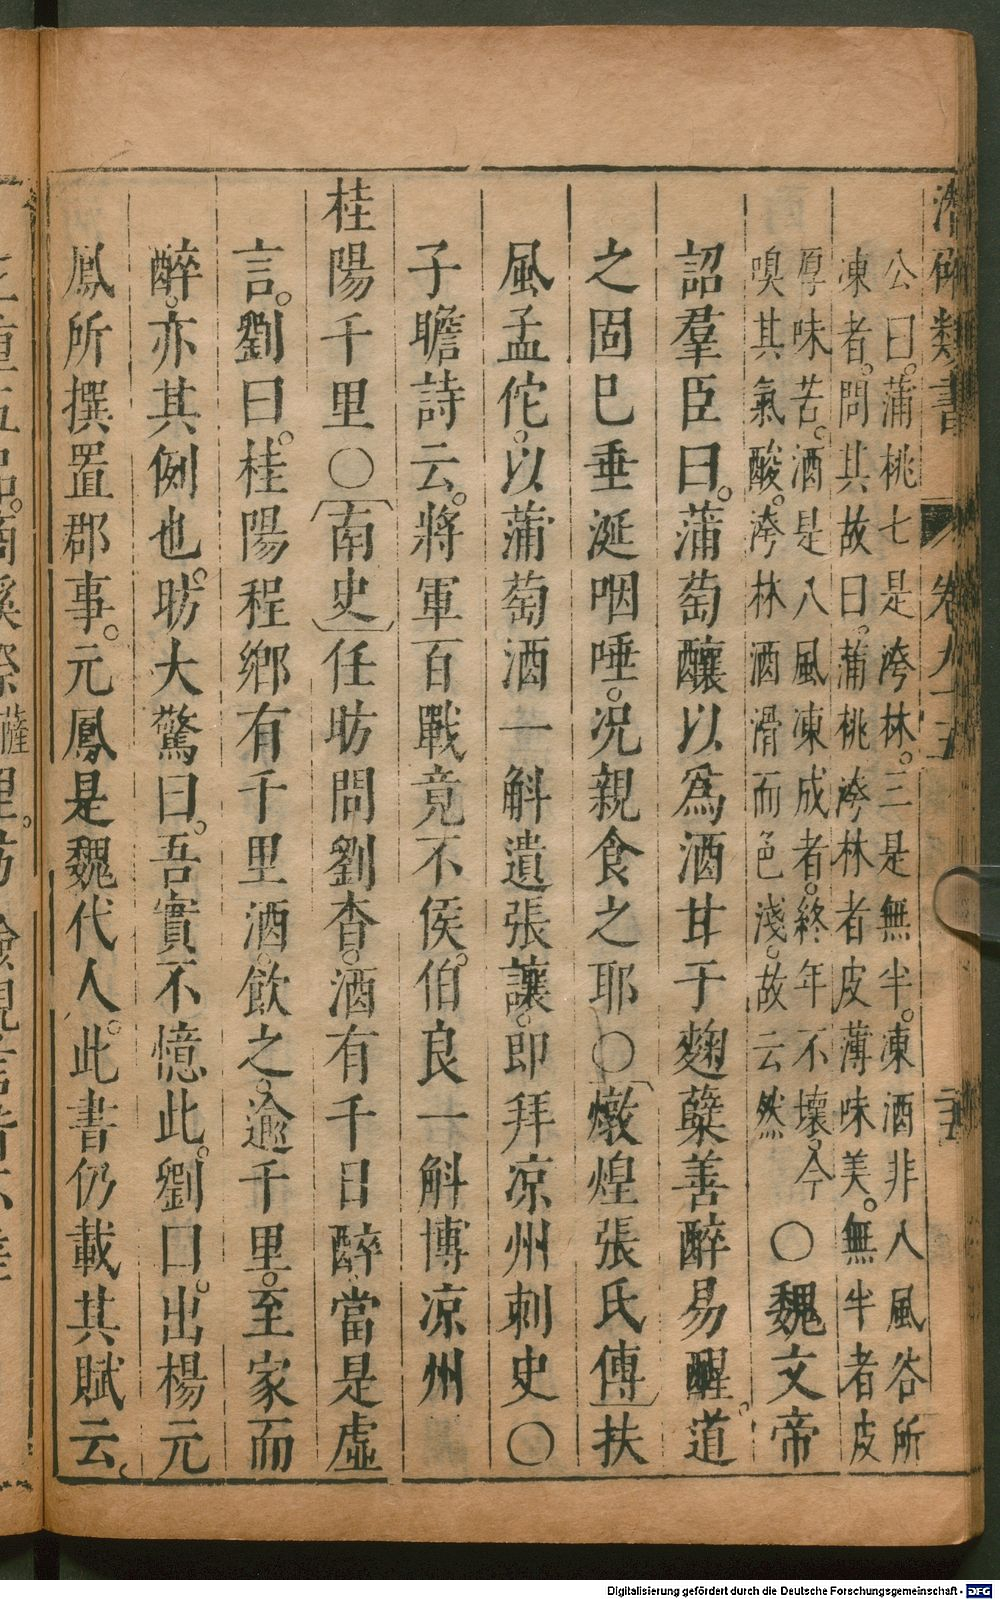 潛確類書 卷九十五 二十
公曰。蒲桃七是洿林。三是無半。凍酒非八風谷所
凍者。問其故曰。蒲桃洿林者皮薄味美。無半者皮
厚味苦。酒是八風凍成者。終年不壞。今
嗅其氣酸。洿林酒滑而色淺。故云然
〇魏文帝
詔羣臣曰。蒲萄釀以爲酒甘于麴蘖善醉易醒。道
之固已垂涎咽唾。况親食之耶〇燉煌張氏傳扶
風孟佗。以蒲萄酒一斛遺張讓。即拜凉州刺史〇
子瞻詩云。將軍百戰竟不侯。伯良一斛博凉州
桂陽千里〇南史任昉問劉杳。酒有千日醉當是虛
言。劉曰。桂陽程鄉有千里酒。飲之。逾千里。至家而
醉。亦其例也。昉大驚曰。吾實不憶此。劉曰。出楊元
鳳所撰置郡事。元鳳是魏代人。此書仍載其賦云。
Digitalisierung gefördert durch die Deutsche Forschungsgemeinschaft - DFG